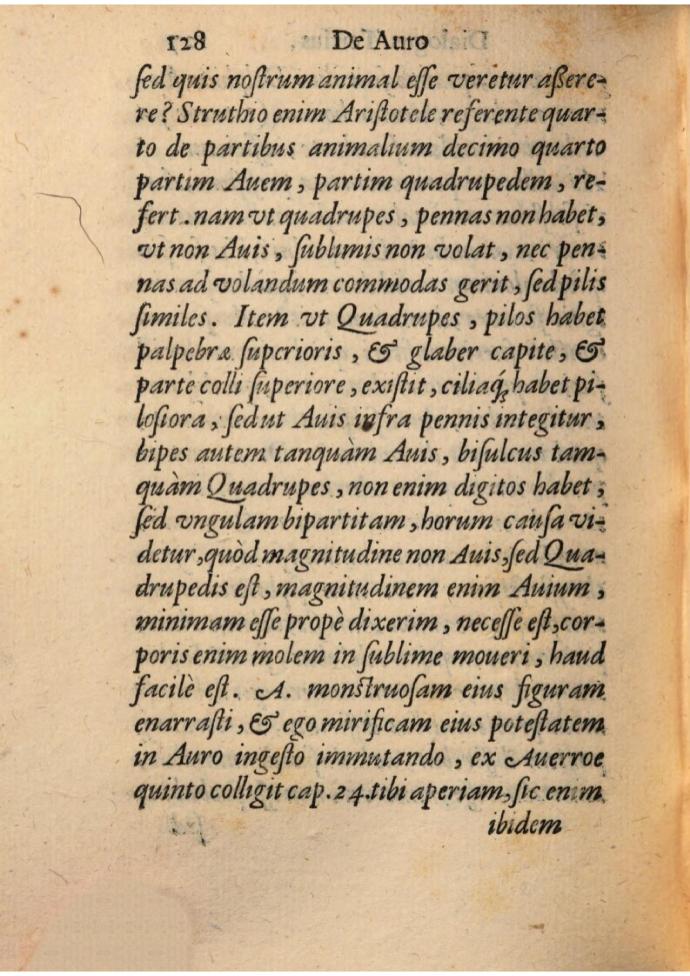 128 De Auro
sed quis nostrum animal esse veretur aßere-
re? Struthio enim Aristotele referente quar-
to de partibus animalium decimo quarto
partim Auem, partim quadrupedem, re-
fert. nam vt quadrupes, pennas non habet,
vt non Auis, sublimis non volat, nec pen-
nas ad volandum commodas gerit, sed pilis
similes. Item vt Quadrupes, pilos habet
palpebræ superioris, & glaber capite, &
parte colli superiore, existit, ciliaq́; habet pi-
losiora, sed ut Auis infra pennis integitur,
bipes autem tanquàm Auis, bisulcus tam-
quàm Quadrupes, non enim digitos habet,
sed vngulam bipartitam, horum causa vi-
detur, quòd magnitudine non Auis, sed Qua-
drupedis est, magnitudinem enim Auium,
minimam esse propè dixerim, necesse est, cor-
poris enim molem in sublime moueri, haud
facilè est. A. monstruosam eius figuram
enarrasti, & ego mirificam eius potestatem
in Auro ingesto immutando, ex Auerroe
quinto colligit cap. 24. tibi aperiam, sic enim
ibidem